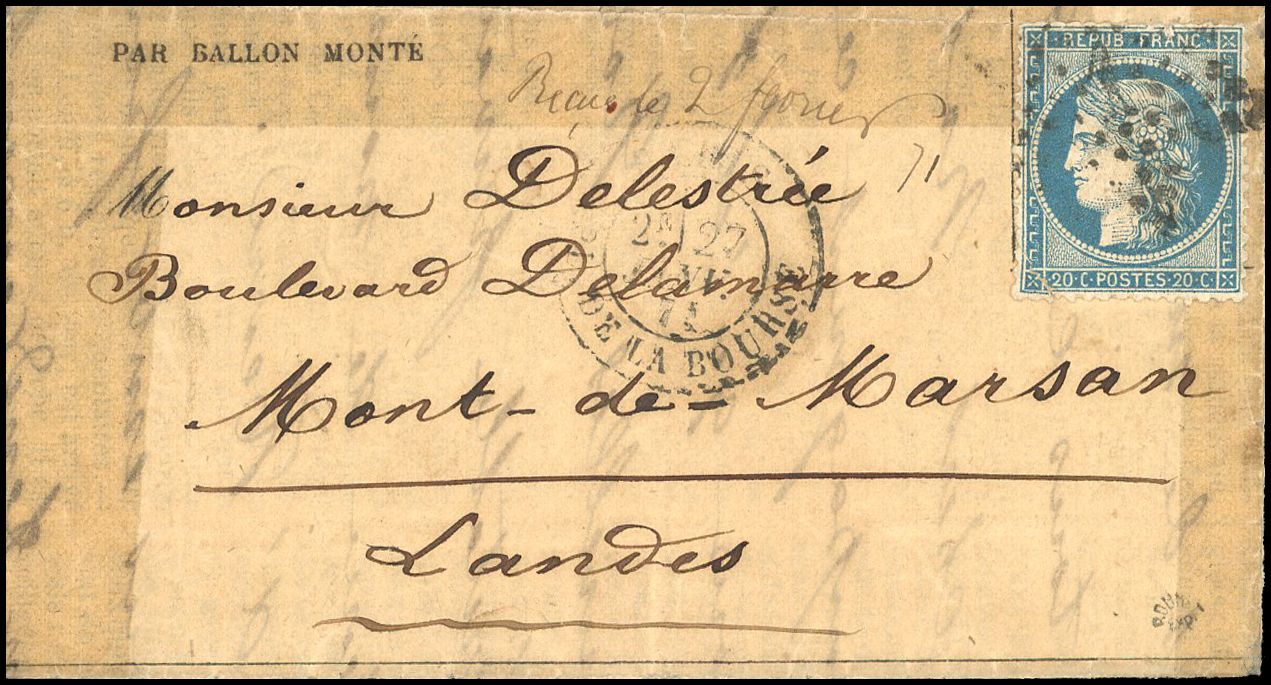 PAR BALLON MONTÉ
REPUB·FRANC·
Reçu le 2 février
71
Monsieur Delestrée
2E 27
JANV.
71
DE LA BOURSE
Boulevard Delamarre
20·C·POSTES·20·C·
Mont-de-Marsan
Landes